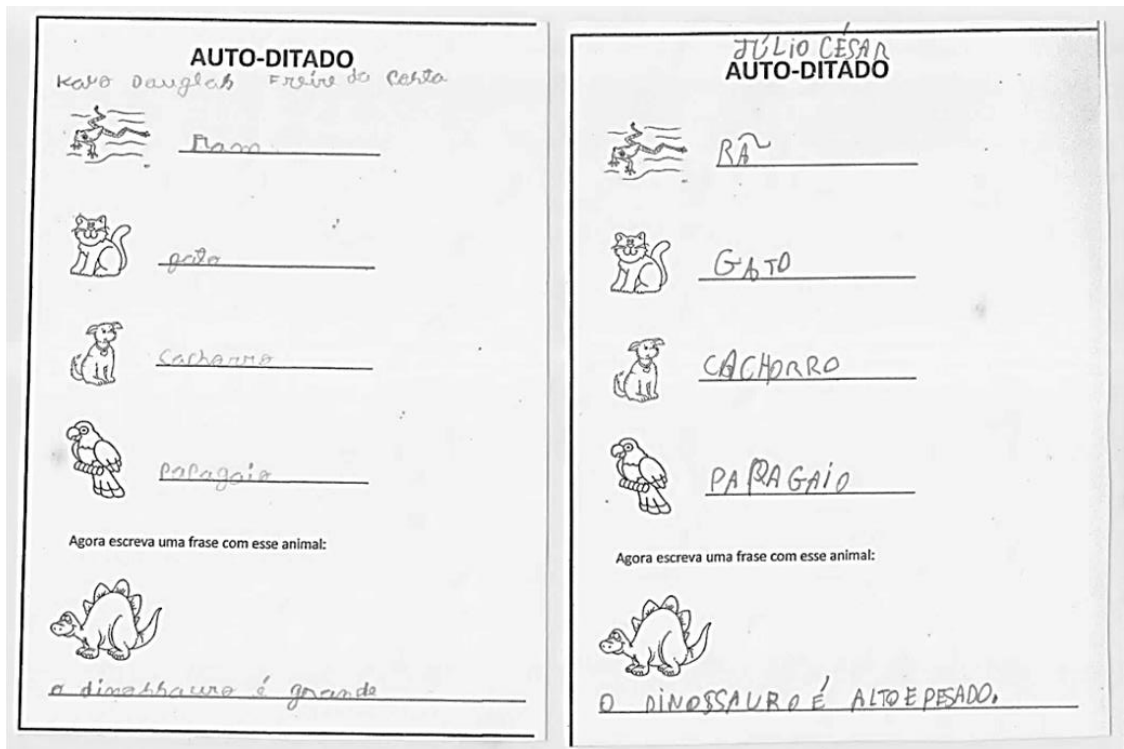 AUTO-DITADO
Dauglas Freire da
gato
cachorro
papagaio
Agora escreva uma frase com esse animal:
o dinossauro é grande
JÚLIO CÉSAR
AUTO-DITADO
RÃ
GATO
CACHORRO
PAPAGAIO
Agora escreva uma frase com esse animal:
O DINOSSAURO É ALTO E PESADO.